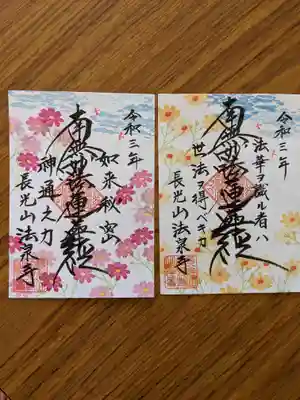 令和三年
如来秘密
南無妙法蓮華経
神通之力
長光山法泉寺
令和三年
法華ヲ識ル者ハ
南無妙法蓮華経
世法ヲ得ベキカ
長光山法泉寺